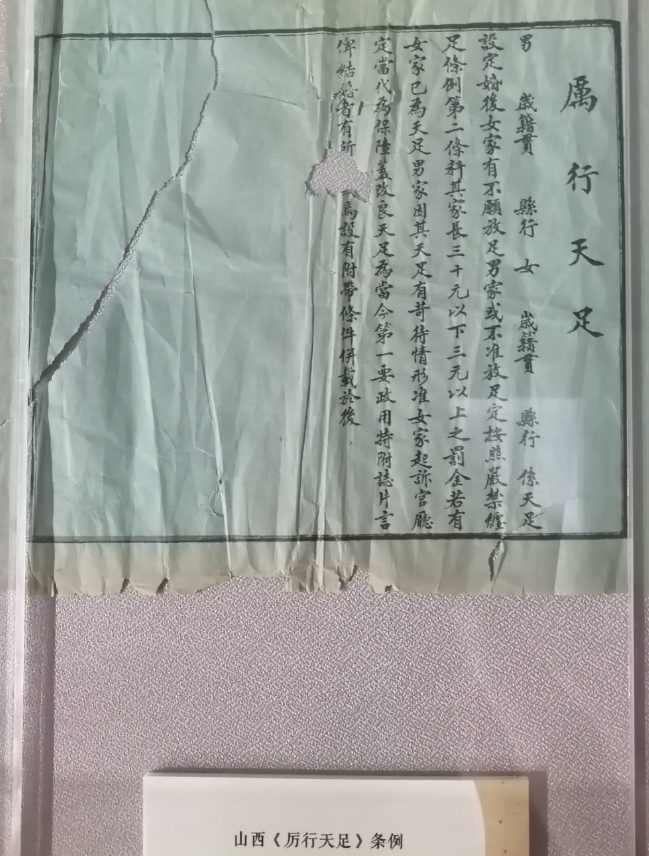 厲行天足
男 歲籍貫 縣行 女 歲籍貫 縣行 係天足
設定婚後女家有不願放足男家或不准放足定按照嚴禁纏
足條例第二條科其家長三十元以下三元以上之罰金若有
女家已為天足男家因其天足有苛待情形准女家起訴官廳
定當代為保障蓋改良天足為當今第一要政用特附誌片言
俾結婚者有所 焉設有附帶條件併載於後
山西《厉行天足》条例